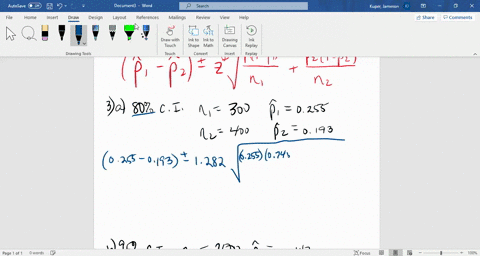 AutoSave Off Document1 - Word Search Kuper, Jammison
File Home Insert Draw Design Layout References Mailings Review View Help Share Comments
Draw with Touch Ink to Shape Ink to Math Drawing Canvas Ink Replay
Drawing Tools Touch Convert Insert Replay
(p̂1 - p̂2) ± z* √ n1 + n2
3) a) 80% C.I. n1 = 300 p̂1 = 0.255
n2 = 400 p̂2 = 0.193
(0.255 - 0.193) ± 1.282 √(0.255)(0.745
Page 1 of 1 Focus 100%